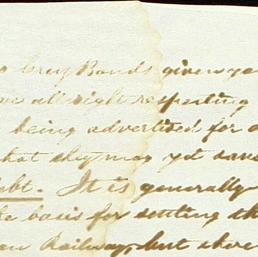 Bonds given yo
all right respecting
being advertised for a
that they may yet save
ebt. It is generally
he basis for settling th
Railway, but there